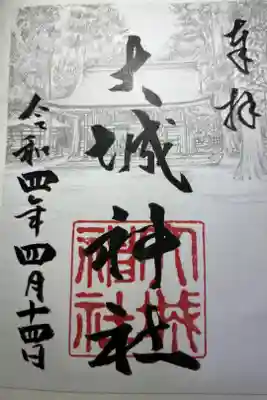 奉拝
大城神社
令和四年四月十四日
大城神社